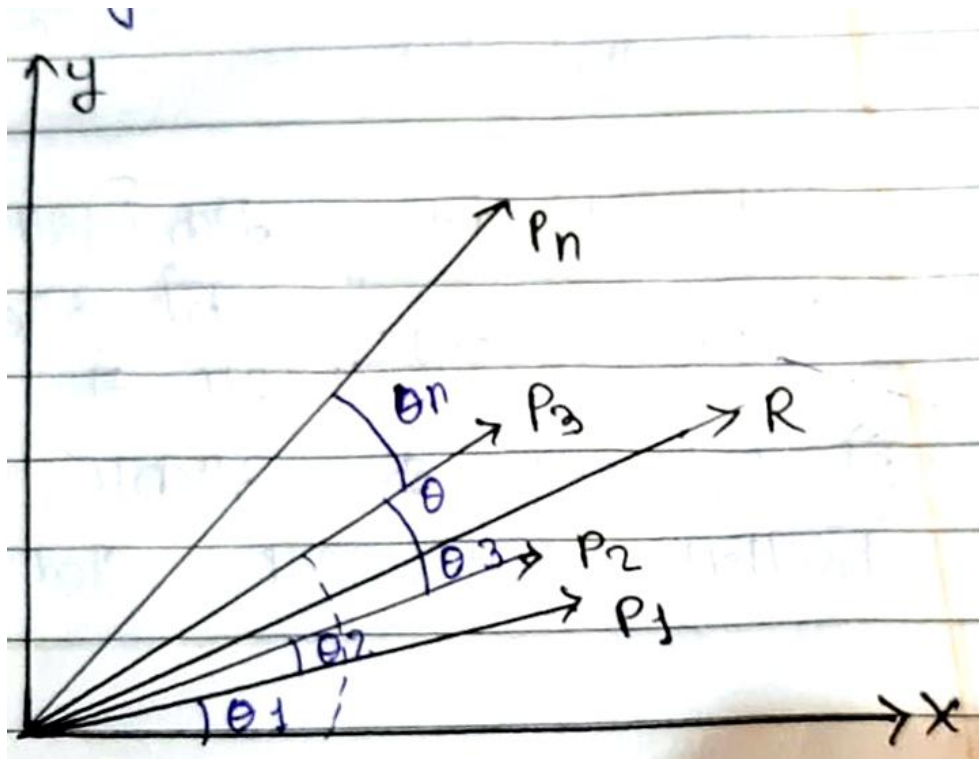 y
Pn
θn
P3
R
θ
θ3
P2
P1
θ2
θ1
X